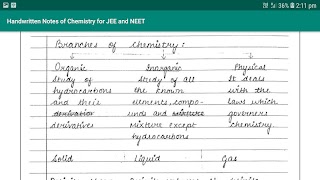 36% 2:11 pm
Handwritten Notes of Chemistry for JEE and NEET
Branches of chemistry:
Organic Inorganic Physical
Study of Study of all It deals
hydrocarbons the known with the
and their elements, compo- laws which
derivation unds and mixture governs
derivatives mixture except chemistry.
hydrocarbons
Solid Liquid Gas